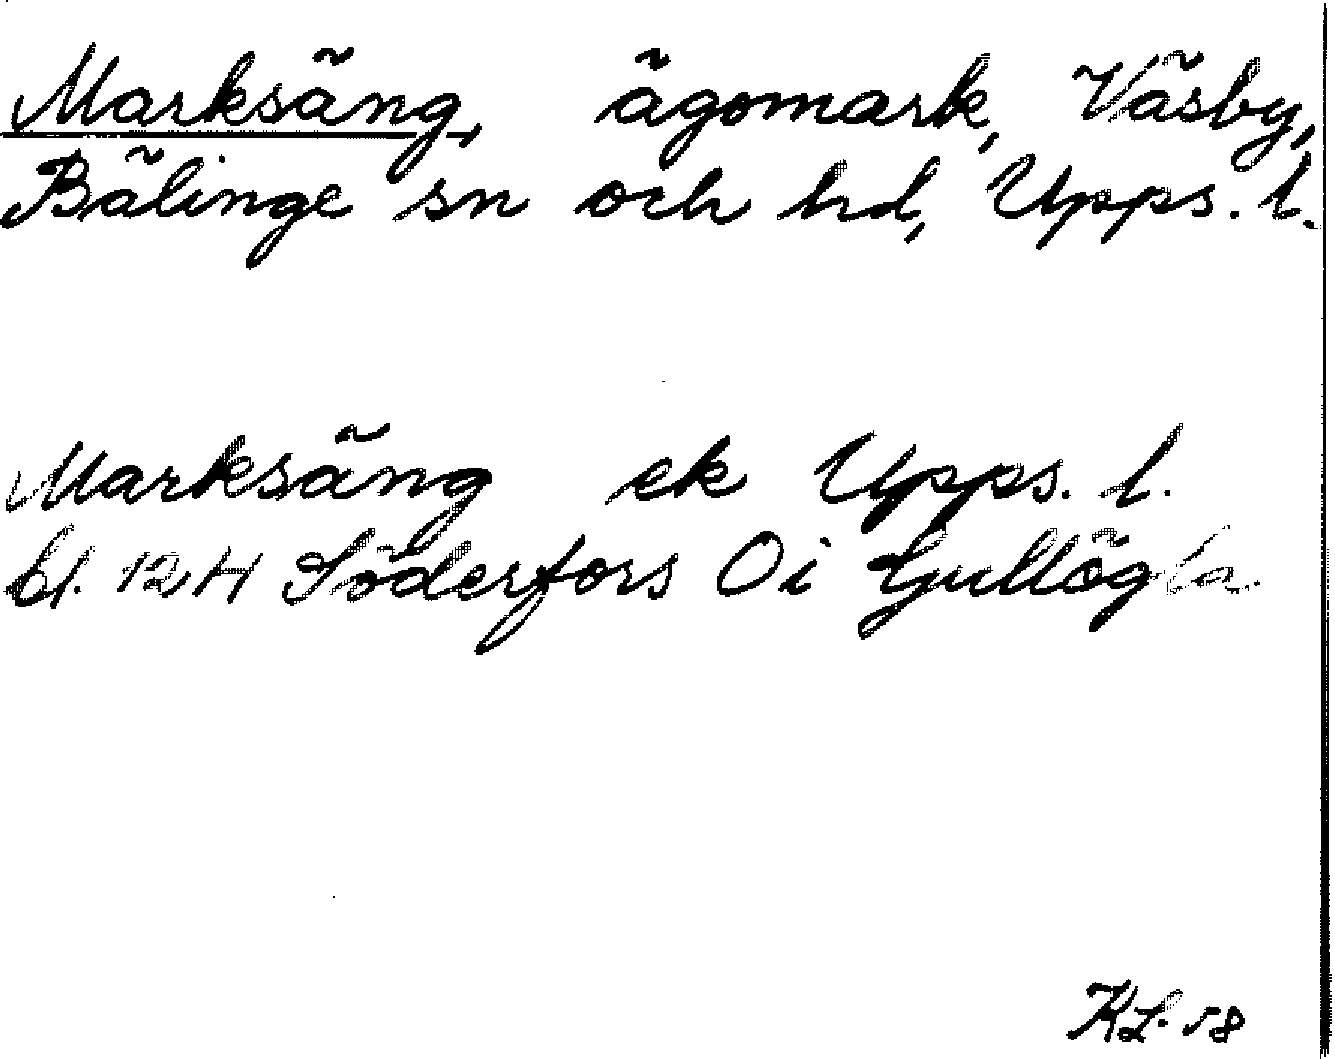 Marksäng, ägomark, Väsby,
Bälinge sn och hd, Upps. l.
Marksäng ek Upps. l.
bl. 12H Söderfors Oi Gullögla
KL. 58